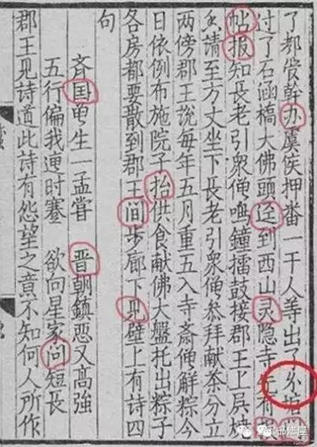 了都管幹办虞侯押番一干人等出了
过了石涵橋大佛頭迳到西山灵隐寺先有
帖报知長老引衆僧鳴鐘擂鼓接郡王上殿
請至方丈坐下長老引衆僧參拜献茶分立
两傍郡王說每年五月重五入寺斋僧解粽今
日依例布施院子抬供食献佛大盤托出粽子
各房都要散到郡王间步廊下见壁上有詩四
句
斉国曽生一孟嘗　晋朝鎮惡又高強
五行偏我遇时蹇　欲向星家问短長
郡王見詩道此詩有怨望之意不知何人所作